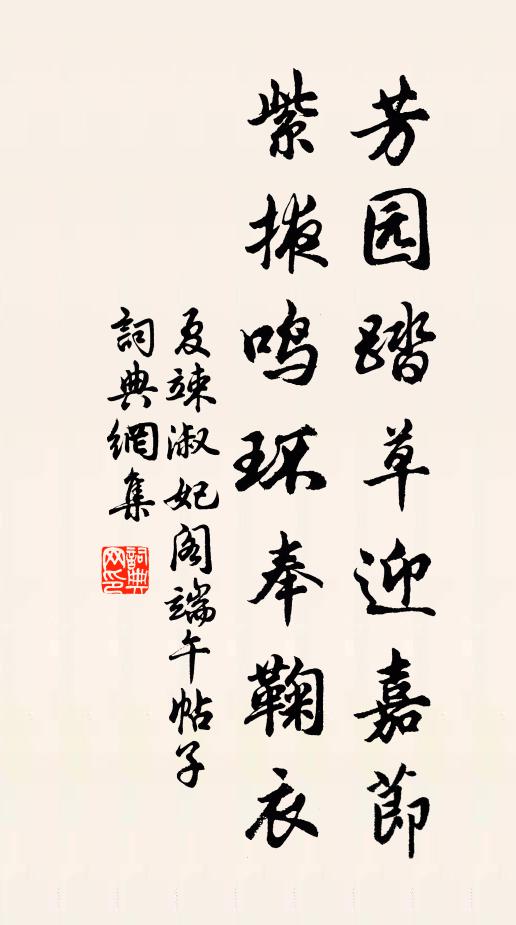 芳园踏草迎嘉节
紫掖鸣环奉鞠衣
夏竦淑妃阁端午帖子
詞典網集
詞典網印